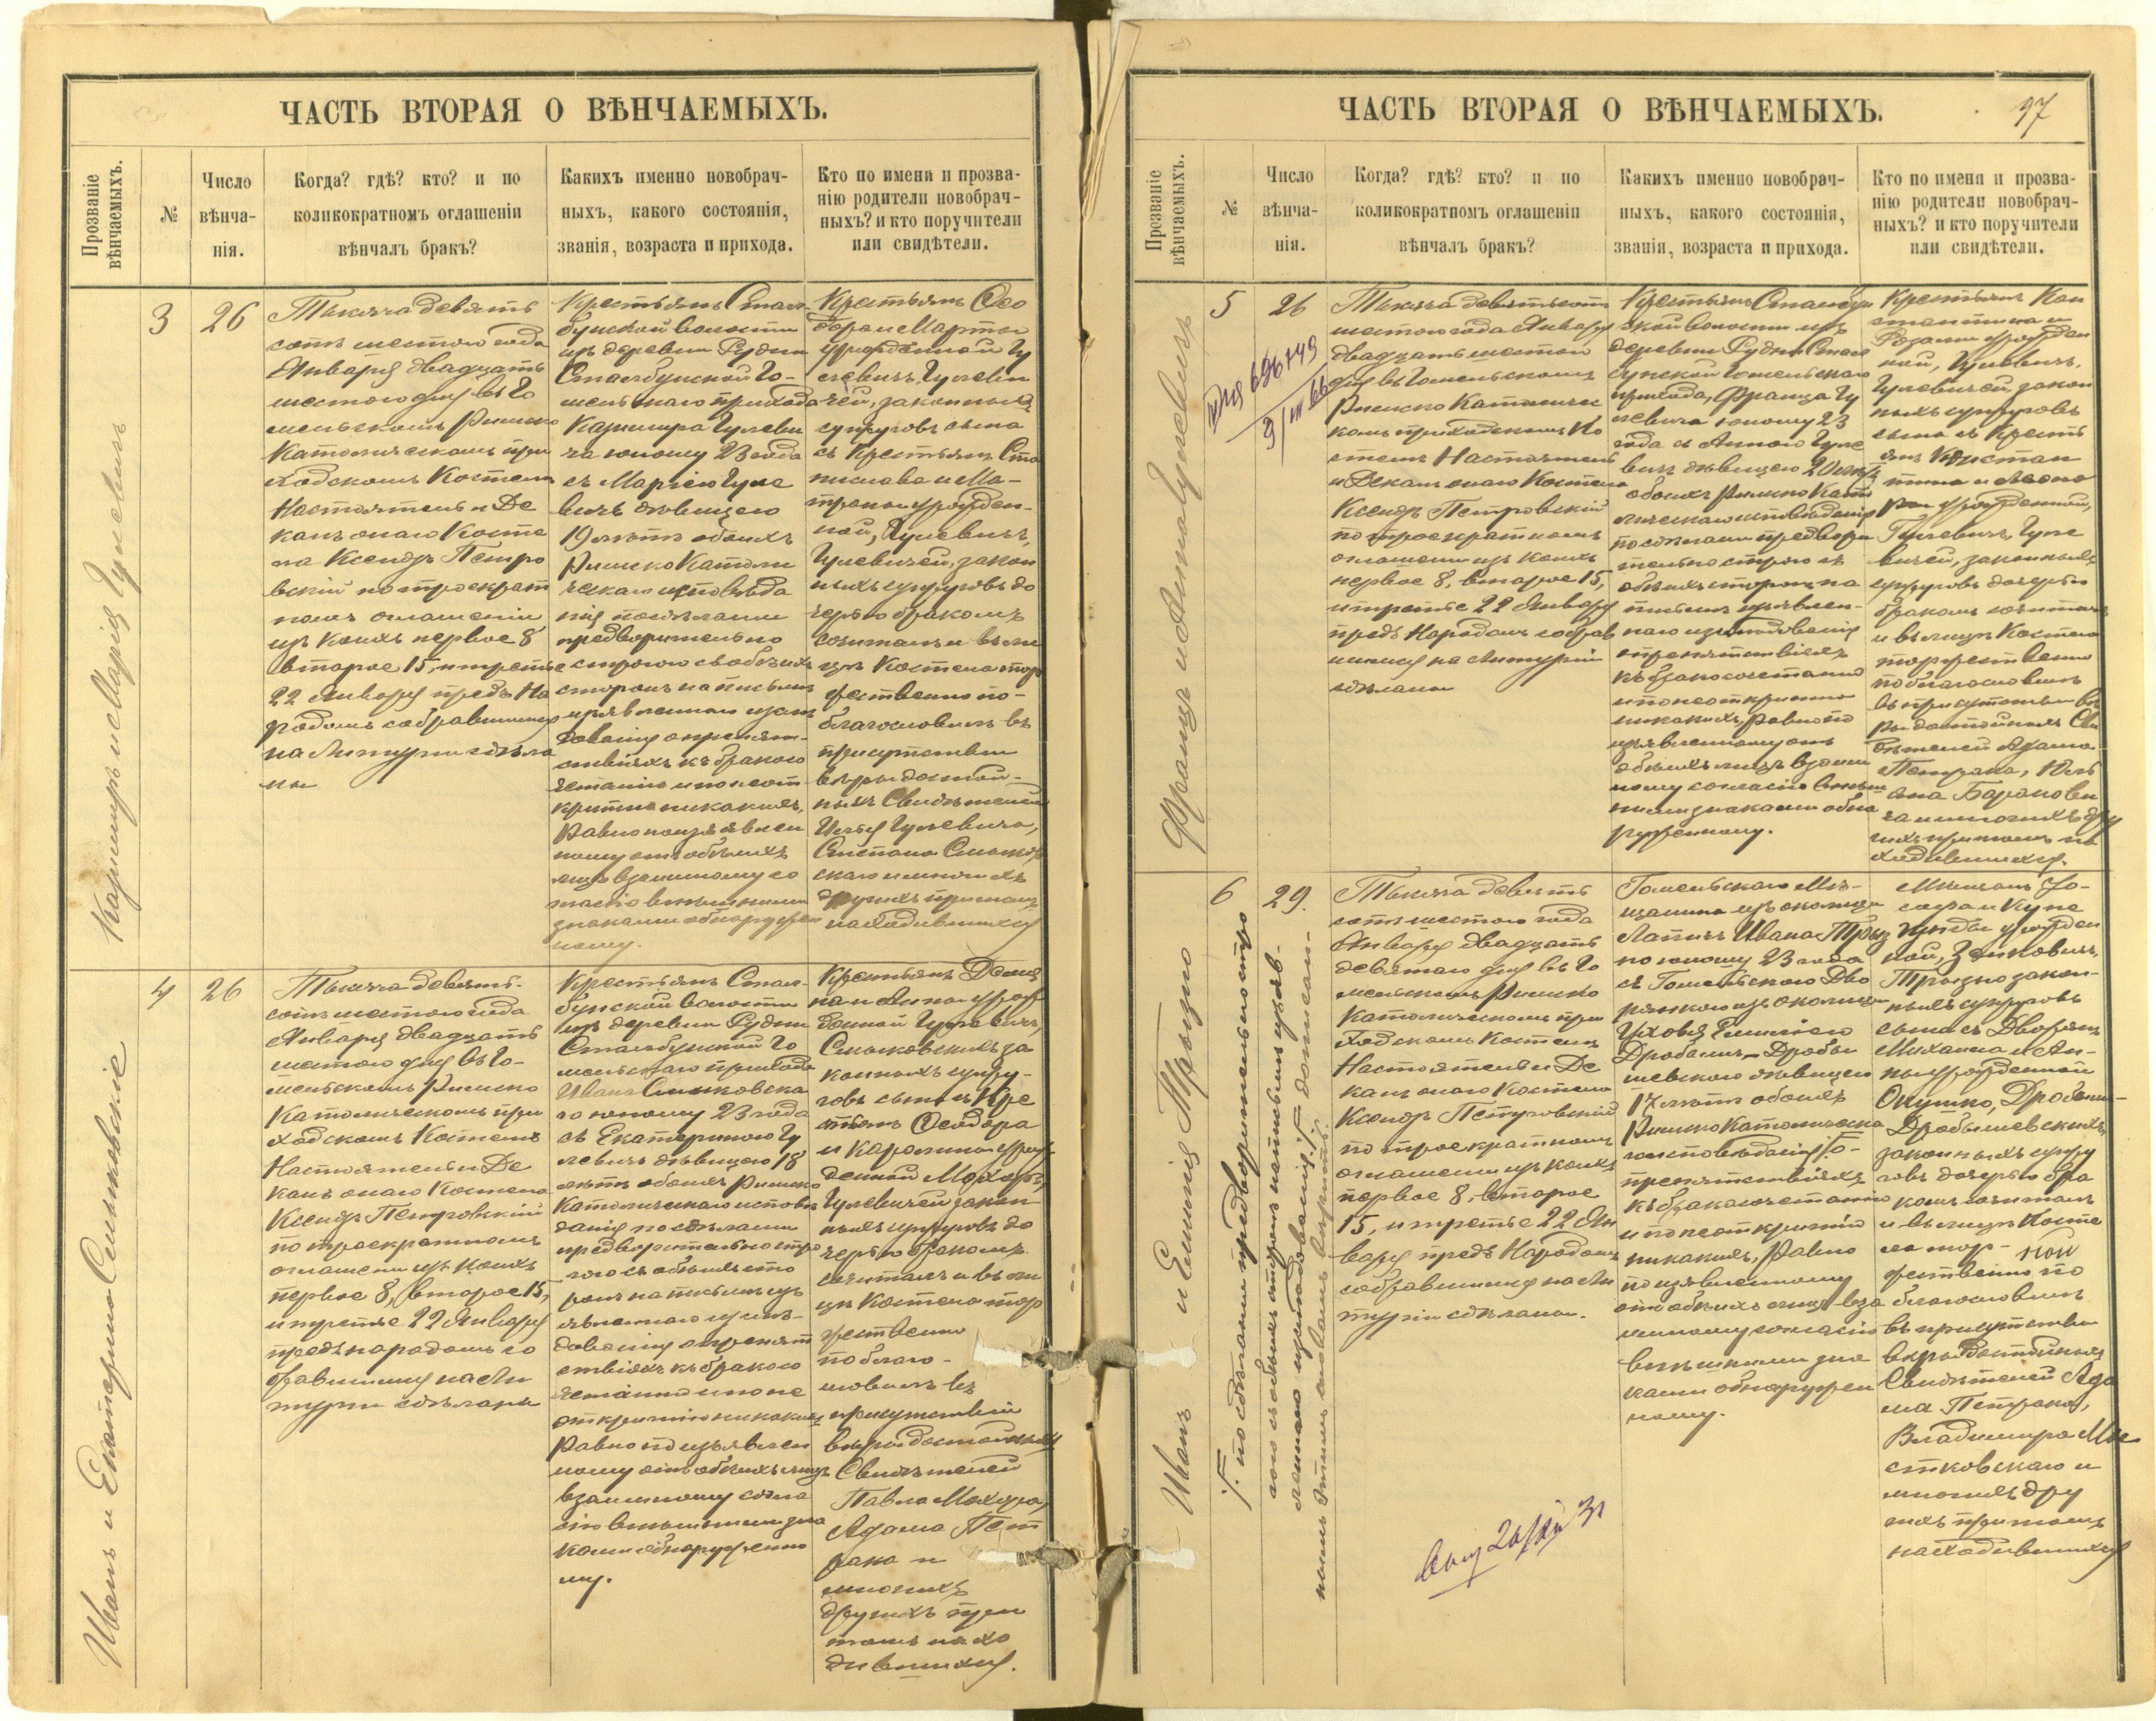 ЧАСТЬ ВТОРАЯ О ВѢНЧАЕМЫХЪ.
Прозваніе
вѣнчаемыхъ.
№
Число
вѣнча-
нія.
Когда? гдѣ? кто? и по
коликократномъ оглашеніи
вѣнчалъ бракъ?
Какихъ именно новобрач-
ныхъ, какого состоянія,
званія, возраста и прихода.
Кто по имени и прозва-
нію родители новобрач-
ныхъ? и кто поручители
или свидѣтели.
Казимиръ и Марія Гулевичъ
3
26
Тысяча девять
сотъ шестого года
Января двадцать
шестого дня въ Го
мельскомъ Римско
Католическомъ при
ходскомъ Костелѣ
Настоятель и Де
канъ онаго Косте
ла Ксендзъ Петро
вскій по троекрат
номъ оглашеніи
изъ коихъ первое 8
второе 15, и третье
22 Января предъ На
родомъ собравшимся
на Литургіи сдѣла
ны
Крестьянъ Стол
бунской волости
изъ деревни Рудни
Столбунской Го-
мельскаго прихода
Казимира Гулеви
ча юношу 23 года
съ Маріею Гуле
вичъ дѣвицею
19 лѣтъ обоихъ
Римско Католи
ческаго исповѣда
нія по сдѣланіи
предворительно
строгого съ обѣихъ
сторонъ на письмѣ
изъявленнаго изслѣ
дованія о препят-
ствіяхъ къ бракосо
четанію и по неот
крытію никакихъ,
равно по изъявлен
ному отъ обѣихъ
лицъ взаимному со
гласію внѣшними
знаками обнаружен
ному.
Крестьянъ Ѳео
дора и Марты
урожденной Гу
левичъ, Гулеви
чей, законныхъ
супруговъ сына
съ Крестьянъ Ста
нислава и Ма-
троны урожден-
ной, Гулевичъ,
Гулевичей, закон
ныхъ супруговъ до
черью бракомъ
сочиталъ и въ ли
цѣ Костела тор
жественно по-
благословилъ въ
присутствіи
вѣрыдостой-
ныхъ Свидѣтелей
Ильи Гулевича,
Степана Смыков
скаго и многихъ
другихъ притомъ
находившихся
Иванъ и Екатерина Смыковскіе
4
26
Тысяча девять-
сотъ шестого года
Января двадцать
шестого дня въ Го-
мельскомъ Римско
Католическомъ при
ходскомъ Костелѣ
Настоятель и Де
канъ онаго Костела
Ксендзъ Петровскій
по троекратномъ
оглашеніи изъ коихъ
первое 8, второе 15,
и третье 22 Января
предъ народомъ со
бравшимся на Ли
тургіи сдѣланы
Крестьянъ Стол-
бунской волости
изъ деревни Рудни
Столбунской Го
мельскаго прихода
Ивана Смыковска
го юношу 23 года
съ Екатериною Гу
левичъ дѣвицею 18
лѣтъ обоихъ Римско
Католическаго исповѣ
данія по сдѣланіи
предворительно стро
гого съ обѣихъ сто
ронъ на письмѣ изъ
явленнаго изслѣ-
дованія о препят
ствіяхъ къ бракосо
четанію и по не
открытію никакихъ
равно по изъявлен
ному отъ обѣихъ лицъ
взаимному согла
сію внѣшними зна
ками обнаруженно
му.
Крестьянъ
и Анны урож
денной Гулевичъ,
Смыковскихъ за
конныхъ супру-
говъ сына съ Кре
стьянъ Ѳеодора
и Каролины урож
денной
Гулевичей закон
ныхъ супруговъ до
черью бракомъ
сочиталъ и въ ли
цѣ Костела тор
жественно
поблаго-
словилъ въ
присутствіи
вѣрыдостойныхъ
Свидѣтелей
Павла
Адама Пет
рака и
многихъ
другихъ при
томъ нахо
дившихся.
ЧАСТЬ ВТОРАЯ О ВѢНЧАЕМЫХЪ.
97
Прозваніе
вѣнчаемыхъ.
№
Число
вѣнча-
нія.
Когда? гдѣ? кто? и по
коликократномъ оглашеніи
вѣнчалъ бракъ?
Какихъ именно новобрач-
ныхъ, какого состоянія,
званія, возраста и прихода.
Кто по имени и прозва-
нію родители новобрач-
ныхъ? и кто поручители
или свидѣтели.
Францъ и Анна Гулевичъ
5
26
696149
9/III 66
Тысяча девятьсотъ
шестого года Января
двадцать шестого
дня въ Гомельскомъ
Римско Католичес
комъ приходскомъ Ко
стелѣ Настоятель
и Деканъ онаго Костела
Ксендзъ Петровскій
по троекратномъ
оглашеніи изъ коихъ
первое 8, второе 15,
и третье 22 Января
предъ Народомъ собрав
шимся на Литургіи
сдѣланы
Крестьянъ Столбун
ской волости изъ
деревни Рудни Стол
бунской Гомельскаго
прихода, Франца Гу
левича юношу 23
года съ Анною Гуле
вичъ дѣвицею 20 лѣтъ
обоихъ Римско Като
лическаго исповѣданія
по сдѣланіи предвори
тельно строгого съ
обѣихъ сторонъ на
письмѣ изъявлен-
наго изслѣдованія
о препятствіяхъ
къ бракосочетанію
и по неоткрытію
никакихъ, равно по
изъявленному отъ
обѣихъ лицъ взаим
ному согласію внѣш
ними знаками обна
руженному.
Крестьянъ Кон
стантина и
Розаліи урожден
ной, Гулевичъ,
Гулевичей, закон
ныхъ супруговъ
сына съ Кресть
янъ
урожденной,
Гулевичъ, Гуле
вичей, законныхъ
супруговъ дочерью
бракомъ сочиталъ
и въ лицѣ Костела
торжественно
поблагословилъ
въ присутствіи вѣ
рыдостойныхъ Сви
дѣтелей Адама
Петрака,
и многихъ дру
гихъ притомъ на
ходившихся.
Иванъ и Емилія Трызно
6
29.
Тысяча девять
сотъ шестого года
Января двадцать
девятого дня въ Го
мельскомъ Римско
Католическомъ при
ходскомъ Костелѣ
Настоятель и Де
канъ онаго Костела
Ксендзъ Петровскій
по троекратномъ
оглашеніи изъ коихъ
первое 8, второе
15, и третье 22 Ян
варя предъ Народомъ
собравшимся на Ли
тургіи сдѣланы.
Гомельскаго Мѣ-
щанина изъ околицы
Ивана Трыз
но юношу 23 года
съ Гомельскою Дво
рянкою изъ околицы
Емиліею
дѣвицею
17 лѣтъ обоихъ
Римско Католическа
го исповѣданія о-
препятствіяхъ
къ бракосочетанію
и по неоткрытію
никакихъ, равно
по изъявленному
отъ обѣихъ лицъ вза
имному согласію
внѣшними зна
ками обнаружен
ному.
Мѣщанъ Іо-
сифа и Куне
гунды урожден
ной,
Трызно закон-
ныхъ супруговъ
сына съ Дворянъ
Михаила и Ан-
ны урожденной
законныхъ супру
говъ дочерью бра
комъ сочиталъ
и въ лицѣ Косте
ла тор-
жественно по
благословилъ
въ присутствіи
вѣрыдостойныхъ
Свидѣтелей Ада
ма Петрака,
Владимира
стковскаго и
многихъ дру
гихъ притомъ
находившихся
по сдѣланіи предворительно стро
гого съ обѣихъ сторонъ на письмѣ изъяв-
леннаго изслѣдованія